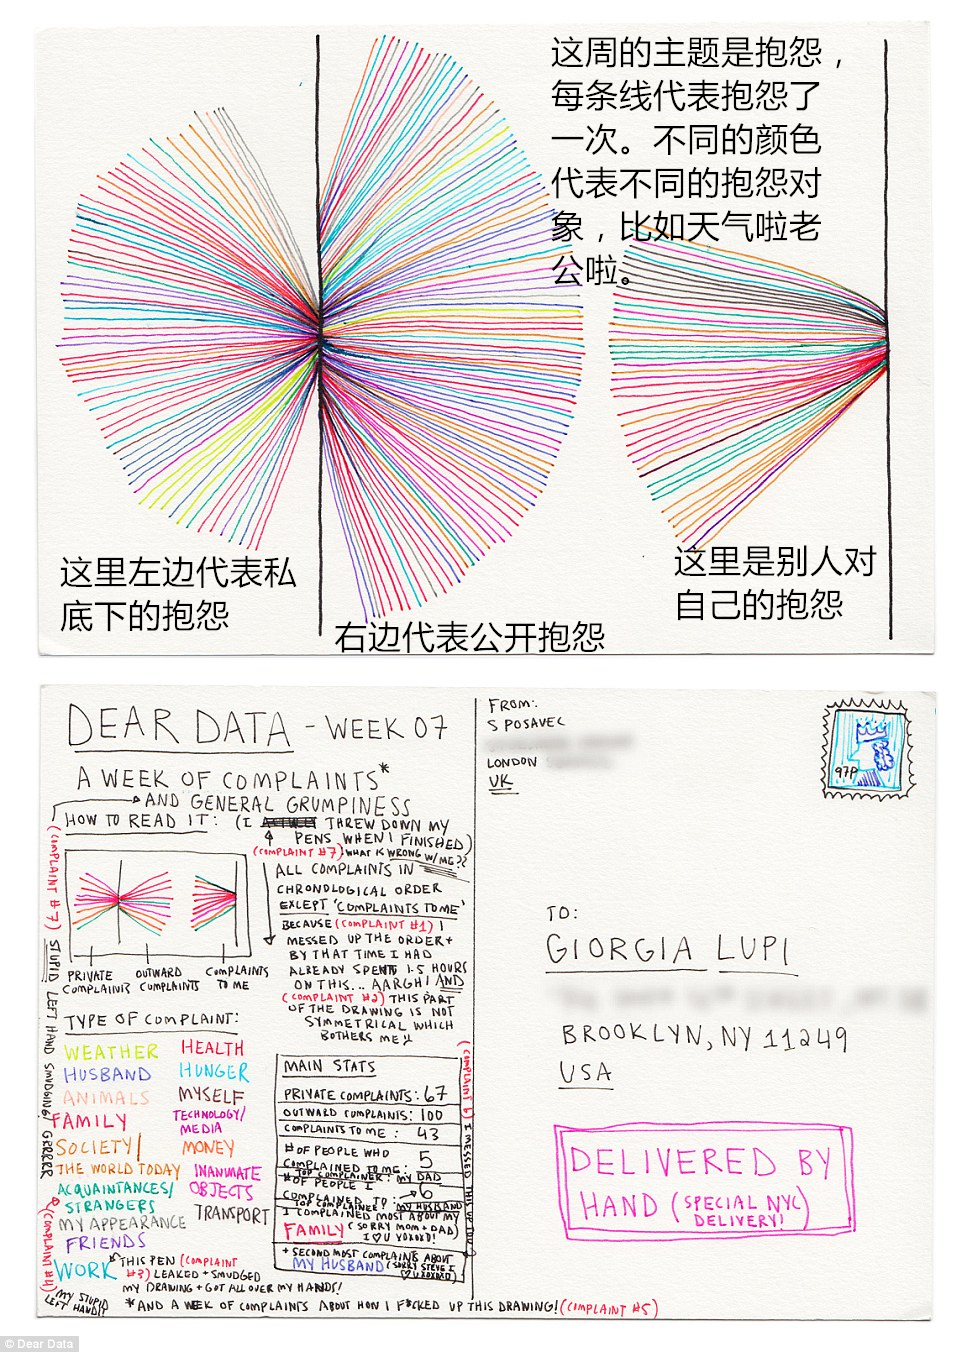 这周的主题是抱怨，
每条线代表抱怨了
一次。不同的颜色
代表不同的抱怨对
象，比如天气啦老
公啦。
这里左边代表私
底下的抱怨
右边代表公开抱怨
这里是别人对
自己的抱怨
DEAR DATA - WEEK 07
A WEEK OF COMPLAINTS*
AND GENERAL GRUMPINESS
HOW TO READ IT: (I THREW DOWN MY
PENS WHEN I FINISHED)
(COMPLAINT #7) WHAT IS WRONG W/ME??
ALL COMPLAINTS IN
CHRONOLOGICAL ORDER
EXCEPT 'COMPLAINTS TO ME'
BECAUSE (COMPLAINT #1) I
MESSED UP THE ORDER +
BY THAT TIME I HAD
ALREADY SPENT 1.5 HOURS
ON THIS... AARGH! AND
(COMPLAINT #2) THIS PART
OF THE DRAWING IS NOT
SYMMETRICAL WHICH
BOTHERS ME!
PRIVATE COMPLAINTS
OUTWARD COMPLAINTS
COMPLAINTS TO ME
(COMPLAINT #7) STUPID LEFT HAND SMUDGING! GRRRER
TYPE OF COMPLAINT:
WEATHER
HUSBAND
ANIMALS
FAMILY
SOCIETY/
THE WORLD TODAY
ACQUAINTANCES/
STRANGERS
MY APPEARANCE
FRIENDS
WORK
HEALTH
HUNGER
MYSELF
TECHNOLOGY/
MEDIA
MONEY
INANIMATE
OBJECTS
TRANSPORT
MAIN STATS
PRIVATE COMPLAINTS: 67
OUTWARD COMPLAINTS: 100
COMPLAINTS TO ME: 43
# OF PEOPLE WHO
COMPLAINED TO ME: 5
TOP COMPLAINER: MY DAD
# OF PEOPLE I
COMPLAINED TO: 6
TOP COMPLAINEE: MY HUSBAND
I COMPLAINED MOST ABOUT MY
FAMILY (SORRY MOM + DAD)
I ♡ U XOXOXO!
+ SECOND MOST COMPLAINTS ABOUT
MY HUSBAND (SORRY STEVE I
♡ U XOXOXO)
(COMPLAINT 6) I MESSED THIS UP TOO
THIS PEN (COMPLAINT
#3) LEAKED + SMUDGED
MY DRAWING + GOT ALL OVER MY HANDS!
(COMPLAINT #4)
MY STUPID
LEFT HAND!!
*AND A WEEK OF COMPLAINTS ABOUT HOW I F*CKED UP THIS DRAWING! (COMPLAINT #5)
FROM:
S POSAVEC
LONDON
UK
97P
TO:
GIORGIA LUPI
BROOKLYN, NY 11249
USA
DELIVERED BY
HAND (SPECIAL NYC
DELIVERY!)
© Dear Data